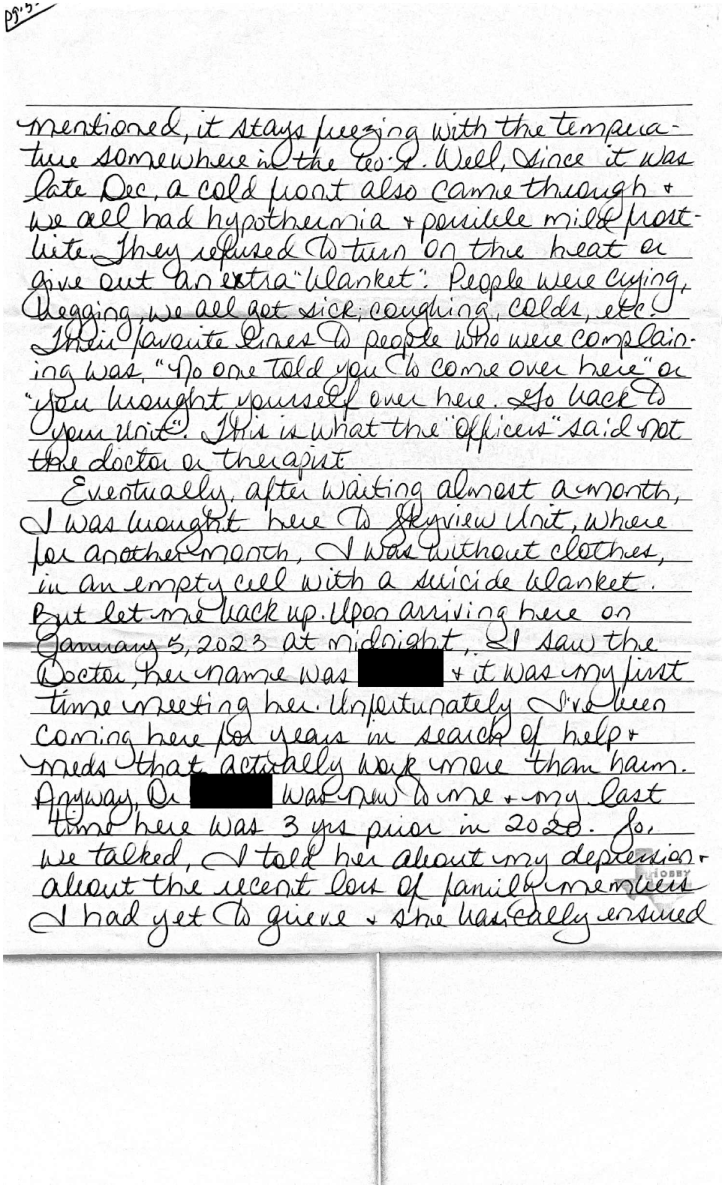 pg.5.
mentioned, it stays freezing with the tempera-
ture somewhere in the 60's. Well, since it was
late Dec, a cold front also came through +
we all had hypothermia + possible mild frost-
bite. They refused to turn on the heat or
give out an extra "blanket". People were crying,
begging, we all got sick, coughing, colds, etc.
Their favorite lines to people who were complain-
ing was, "No one told you to come over here" or
"you brought yourself over here. Go back to
your Unit". This is what the "officers" said not
the doctor or therapist
Eventually, after waiting almost a month,
I was brought here to Skyview Unit, where
for another month, I was without clothes,
in an empty cell with a suicide blanket.
But let me back up. Upon arriving here on
January 5, 2023 at midnight, I saw the
Doctor, her name was + it was my first
time meeting her. Unfortunately I've been
coming here for years in search of help +
meds that actually work more than harm.
Anyway, Dr was new to me + my last
time here was 3 yrs prior in 2020. So,
we talked, I told her about my depression +
about the recent loss of family members
I had yet to grieve + she basically ensured
HOBBY